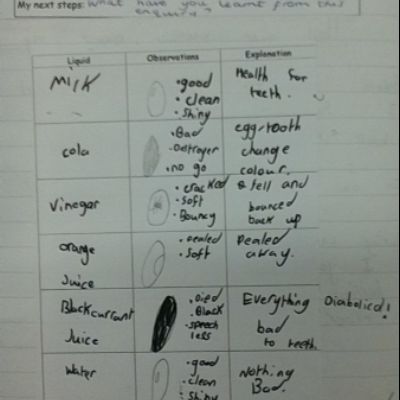 My next steps: What have you learnt from this
enquiry?
Liquid Observations Explanation
Milk
• good
• clean
• Shiny
Health for
teeth.
cola
• Bad
• Destroyer
• no go
egg-tooth
change
colour.
Vinegar
• cracked
• soft
• Bouncy
& fell and
bounced
back up
orange
Juice
• Pealed
• Soft
Pealed
away.
Blackcurrant
Juice
• Died
• Black
• speech
less
Everything
bad
to teeth.
Diabolical!
Water
• good
• clean
• Shiny
Nothing
Bad.